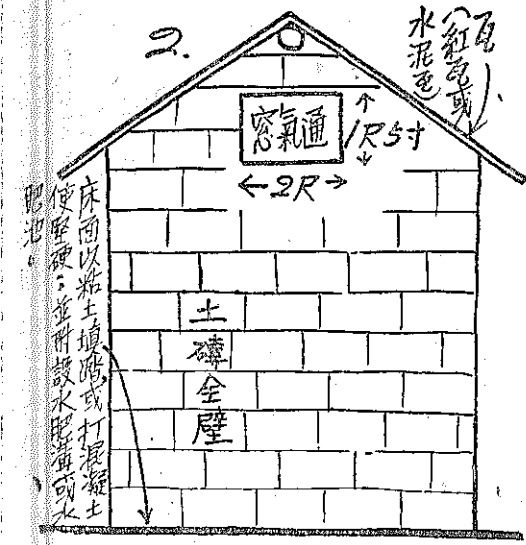 2.
瓦
(紅瓦或
水泥瓦)
通氣窓
1R5寸
←2R→
土磚全壁
床面以粘土填踏或打混凝土
使堅硬：並附設水肥溝或水
肥池。